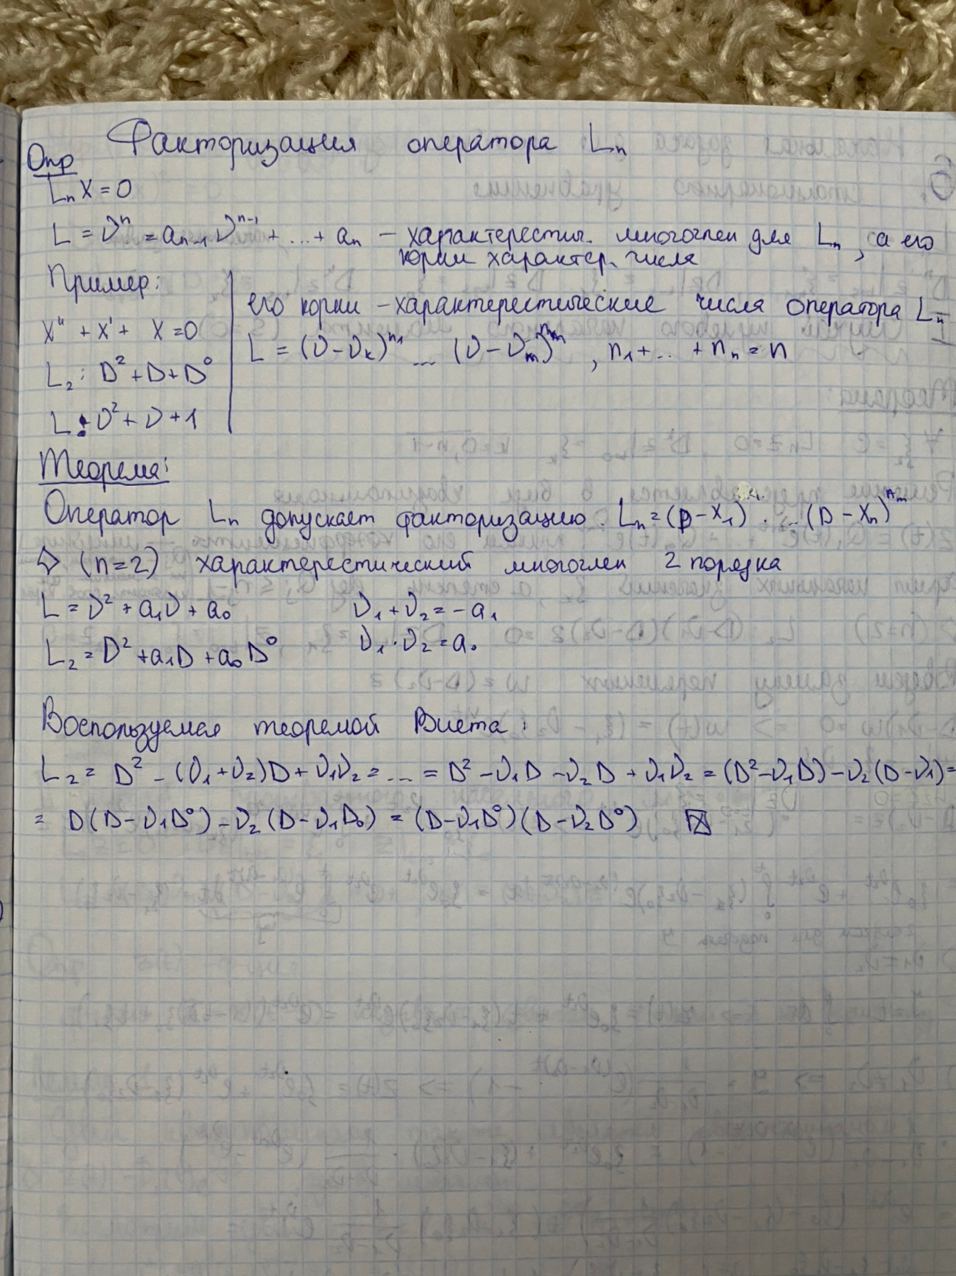 Факторизация оператора Lₙ
Опр
LₙX = 0
L = νⁿ = aₙ₋₁νⁿ⁻¹ + ... + aₙ – характерестич. многочлен для Lₙ, а его
корни характер. числа
Пример:
X'' + X' + X = 0
L₂: D² + D + D⁰
L: ν² + ν + 1
его корни – характерестические числа оператора Lₙ
L = (ν-νₖ)ⁿ¹ ... (ν-νₘ)ⁿᵐ, n₁ + ... + nₙ = n
Теорема:
Оператор Lₙ допускает факторизацию. Lₙ = (D - X₁) · ... (D - Xₙ)ⁿᵐ
▷ (n=2) характерестический многочлен 2 порядка
L = ν² + a₁ν + a₀ ν₁ + ν₂ = -a₁
L₂ = D² + a₁D + a₀D⁰ ν₁ · ν₂ = a₀
Воспользуемся теоремой Виета:
L₂ = D² - (ν₁+ν₂)D + ν₁ν₂ = ... = D² - ν₁D - ν₂D + ν₁ν₂ = (D² - ν₁D) - ν₂(D - ν₁) =
= D(D - ν₁D⁰) - ν₂(D - ν₁D₀) = (D - ν₁D⁰)(D - ν₂D⁰)